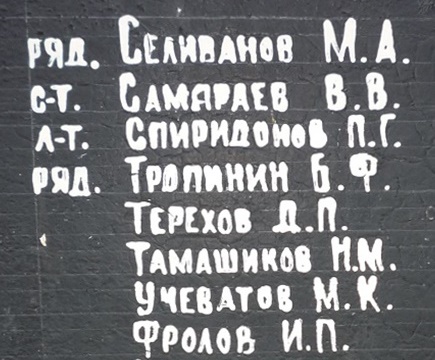 ряд. Селиванов М.А.
с-т. Самараев В.В.
л-т. Спиридонов П.Г.
ряд. Тропинин Б.Ф.
Терехов Д.П.
Тамашиков Н.М.
Учеватов М.К.
Фролов И.П.